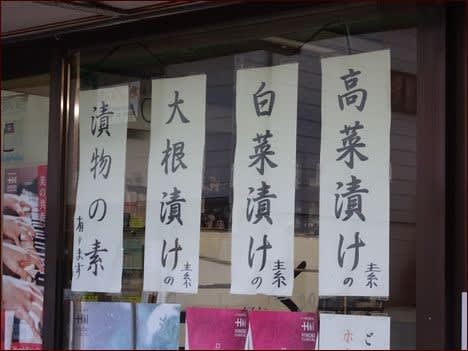 高菜漬けの素
白菜漬けの素
大根漬けの素
漬物の素
有ります